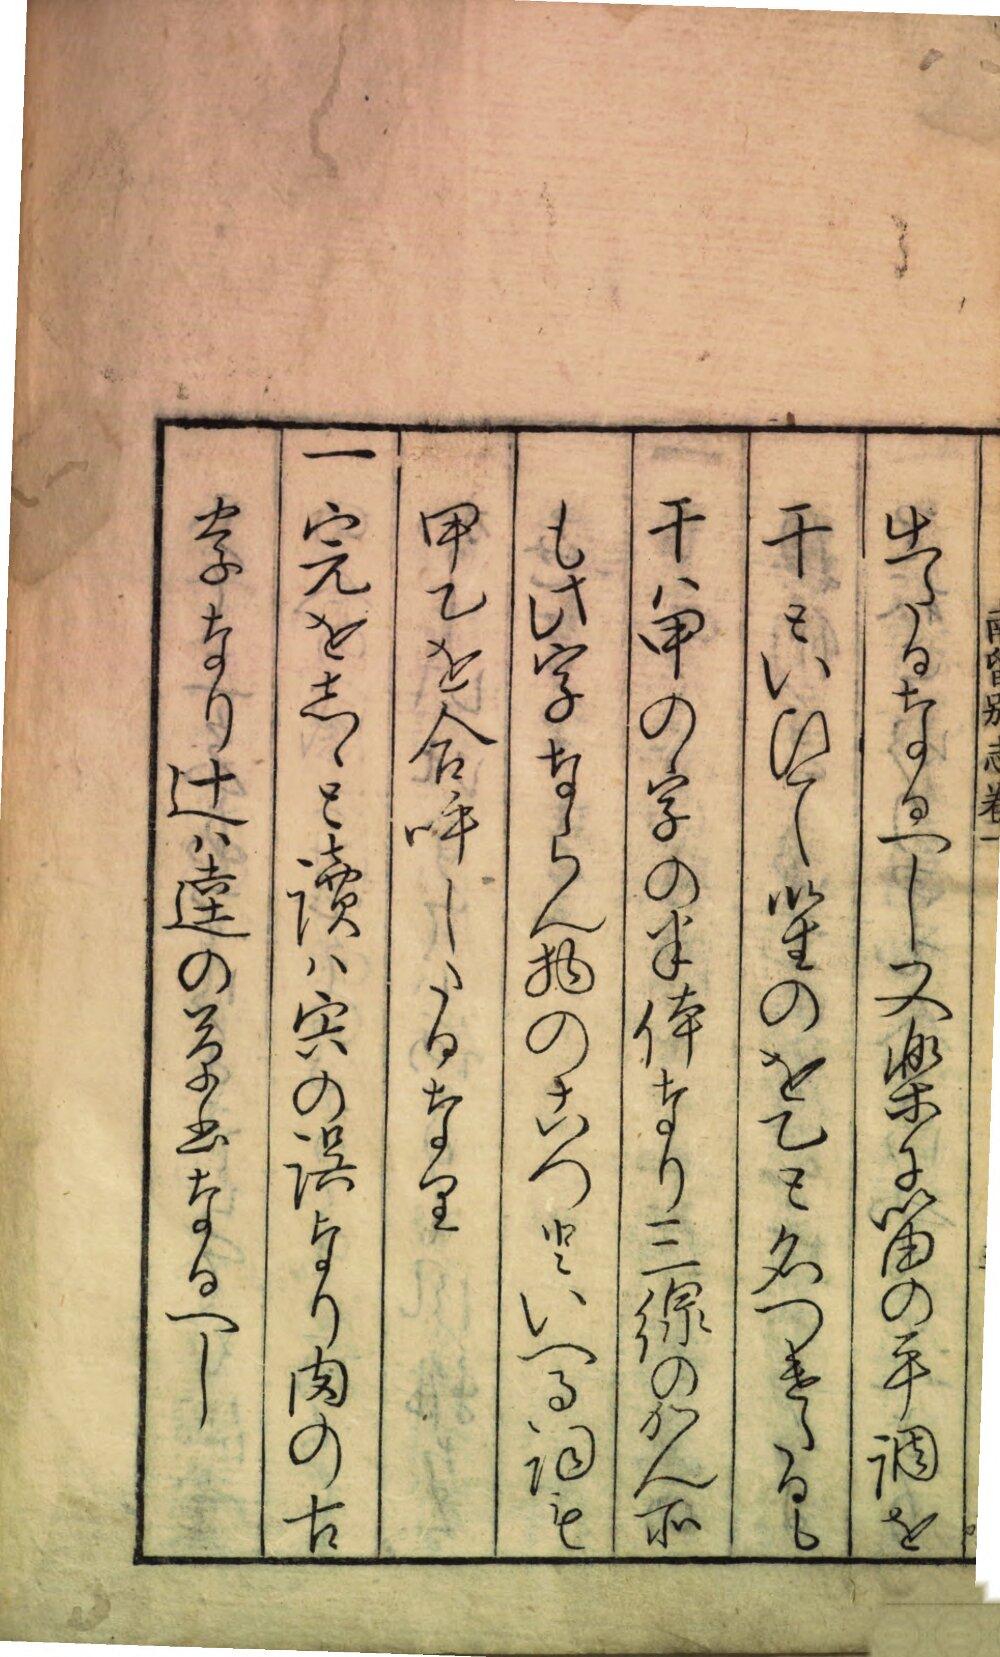 出たるなるへし又楽に笛の平調を
干といひて笙のを乙と名つきたるも
干は甲の字の半体なり三線のかん所
も此字ならん物のかつといへる詞も
甲乙を合呼したるなり
一宍をしゝと讀は宍の誤なり肉の古
字なり辻は達の草書なるへし
南留別志巻一